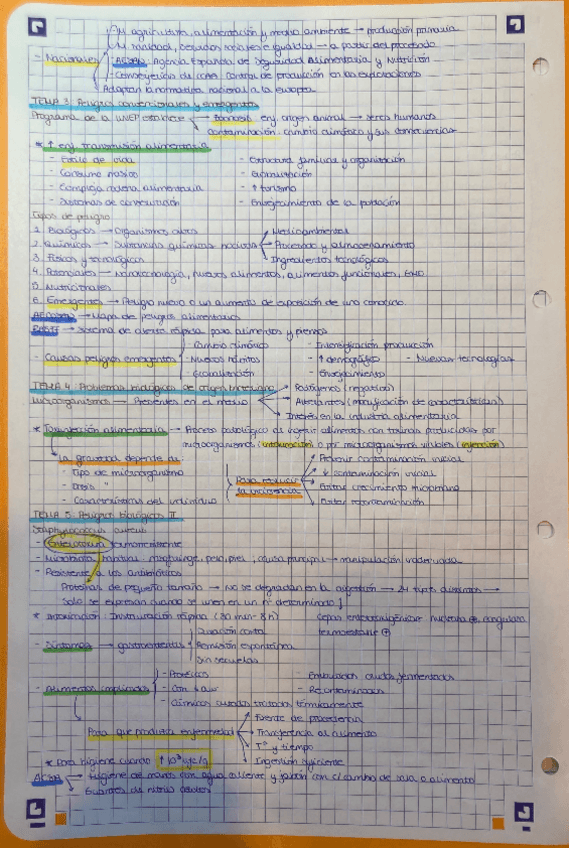 M agricultura, alimentación y medio ambiente → producción primaria
- Nacionales
M sanidad, servicios sociales e igualdad → a partir del procesado
AESAN: Agencia Española de Seguridad Alimentaria y Nutrición
Consejerías de CCAA: control de producción en las explotaciones
Adaptan la normativa nacional a la europea
TEMA 3: Peligros convencionales y emergentes
Programa de la UNEP establece → Zoonosis: enf. origen animal → seres humanos
Contaminación: cambio climático y sus consecuencias
* ↑ enf. transmisión alimentaria
- Estilo de vida
- Consumo masivo
- Compleja cadena alimentaria
- Sistemas de conservación
- Estructura familiar y organización
- ↑ turismo
- Envejecimiento de la población
Tipos de peligro
1. Biológicos → Organismos vivos
2. Químicos → Sustancias químicas nocivas
Medioambientales
Procesado y almacenamiento
Ingredientes tecnológicos
3. Físicos y tecnológicos
4. Potenciales → nanotecnología, nuevos alimentos, alimentos funcionales,
5. Nutricionales
6. Emergentes → Peligro nuevo o un aumento de exposición de uno conocido
→ Mapa de peligros alimentarios
RASFF → Sistema de alerta rápida para alimentos y piensos
- Causas peligros emergentes
- Cambio climático
- Nuevos hábitos
- Globalización
- Intensificación producción
- ↑ demográfico
- Envejecimiento
- Nuevas tecnologías
TEMA 4: Problemas biológicos de origen bacteriano
Microorganismos → Presentes en el medio
Patógenos (negativo)
Alterantes (modificación de características)
Interés en la industria alimentaria
* Toxiinfección alimentaria → Proceso patológico al ingerir alimentos con toxinas producidas por
microorganismos (intoxicación) o por microorganismos viables (infección)
La gravedad depende de:
- Tipo de microorganismo
- Dosis "
- Características del individuo
Para reducir la incidencia
Prevenir contaminación inicial
↓ contaminación inicial
Evitar crecimiento microbiano
Evitar recontaminación
TEMA 5: Peligros biológicos II
Staphylococcus aureus
- Enterotoxina termorresistente
- Microbiota natural: nasofaringe, pelo, piel, causa principal → manipulación inadecuada
- Resistente a los antibióticos
Proteínas de pequeño tamaño → No se degradan en la digestión → 24 tipos distintos →
Solo se expresan cuando se unen en un nº determinado
* Intoxicación: Instauración rápida (30 min - 8h)
Cepas enterotoxigénicas: nucleasa ⊕, coagulasa
termoestable ⊕
- Síntomas → gastroenteritis
Duración corta
Remisión espontánea
Sin secuelas
- Alimentos implicados
- Proteicos
- Con ↓ aw
- Cárnicos curados tratados térmicamente
- Embutidos crudos fermentados
- Recontaminados
Para que produzca enfermedad
Fuente de
Transferencia al alimento
Tª y tiempo
Ingestión suficiente
* Falta higiene cuando ↑ 10³ ufc/g
→ Higiene de manos con agua caliente y jabón